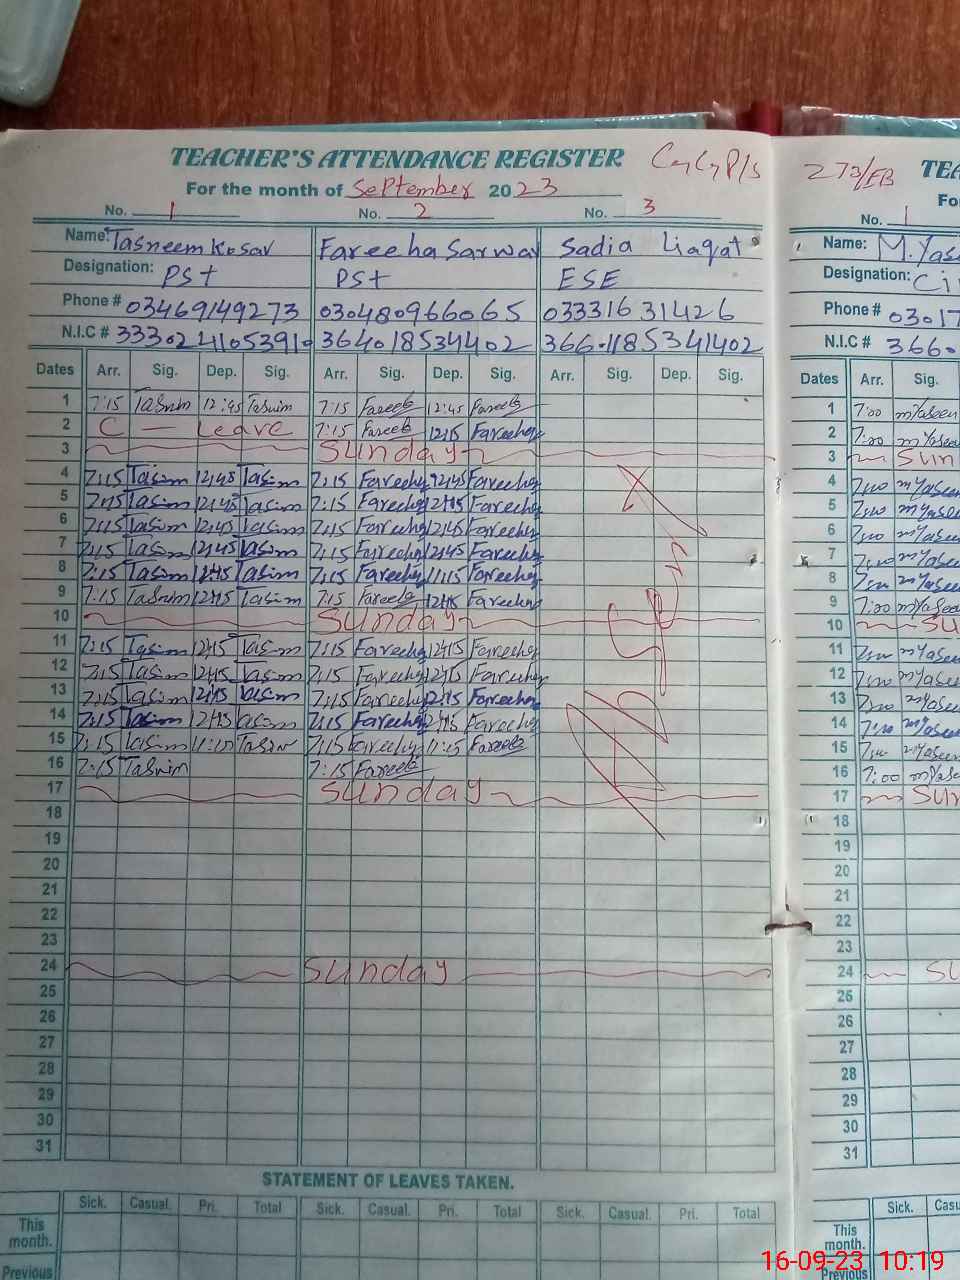 TEACHER'S ATTENDANCE REGISTER
For the month of September 2023
No. 1 No. 2 No. 3
Name: Tasneem Kosar Fareeha Sarwar Sadia Liaqat
Designation: PST PST ESE
Phone # 03469149273 03048096606 5 03331631426
N.I.C # 364018534402 36601185341402
Dates Arr. Sig. Dep. Sig. Arr. Sig. Dep. Sig. Arr. Sig. Dep. Sig.
1 7:15 Tasnim 12:45 Tasnim 7:15 Fareeha 12:45 Fareeha
2 C — Leave 7:15 Fareeha 12:15 Fareeha
3 Sunday
4 7:15 Tasim 12:45 Tasim 7:15 Fareeha 12:45 Fareeha
5 7:15 Tasim 12:45 Tasim 7:15 Fareeha 12:45 Fareeha
6 7:15 Tasim 12:45 Tasim 7:15 Fareeha 12:45 Fareeha
7 7:15 Tasim 12:45 Tasim 7:15 Fareeha 12:45 Fareeha
8 7:15 Tasim Tasim 7:15 Fareeha 11:15 Fareeha
9 7:15 Tasnim 12:45 Tasim 7:15 Fareeha 12:45 Fareeha
10 Sunday
11 7:15 Tasim 12:45 Tasim 7:15 Fareeha 12:45 Fareeha
12 7:15 Tasim 12:45 Tasim 7:15 Fareeha 12:45 Fareeha
13 7:15 Tasim 12:45 Tasim 7:15 Fareeha 12:45 Fareeha
14 7:15 Tasim 12:45 Tasim 7:15 Fareeha 12:45 Fareeha
15 7:15 Tasim Tasim 7:15 Fareeha 11:15 Fareeha
16 7:15 Tasnim 7:15 Fareeha
17 Sunday
18
19
20
21
22
23
24 Sunday
25
26
27
28
29
30
31
STATEMENT OF LEAVES TAKEN.
Sick. Casual. Pri. Total Sick. Casual. Pri. Total Sick. Casual. Pri. Total
This month.
Previous
273/EB
No. 1
Name: M. Yas
Designation:
Phone # 03017
N.I.C # 366
Dates Arr. Sig.
1 7:00 M Yaseen
2 7:00 M Yaseen
3 Sun
4 7:00 M Yaseen
5 7:00 M Yaseen
6 7:00 M Yaseen
7 7:00 M Yaseen
8 7:00 M Yaseen
9 7:00 M Yaseen
10 Su
11 7:00 M Yaseen
12 7:00 M Yaseen
13 7:00 M Yaseen
14 7:00 M Yaseen
15 7:00 M Yaseen
16 7:00 M Yaseen
17 Sun
18
19
20
21
22
23
24 Su
25
26
27
28
29
30
31
Sick. Casu
This month.
Previous
16-09-23 10:19